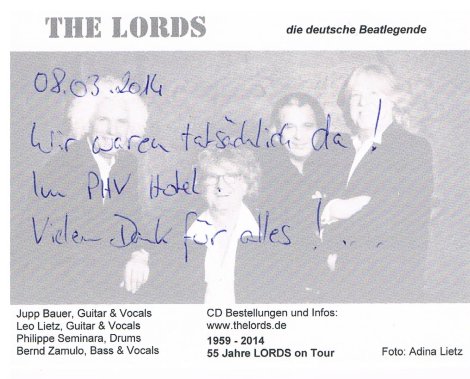 THE LORDS
die deutsche Beatlegende
08.03.2014
Wir waren tatsächlich da!
Im PHV Hotel.
Vielen Dank für alles!...
Jupp Bauer, Guitar & Vocals
Leo Lietz, Guitar & Vocals
Philippe Seminara, Drums
Bernd Zamulo, Bass & Vocals
CD Bestellungen und Infos:
www.thelords.de
1959 - 2014
55 Jahre LORDS on Tour
Foto: Adina Lietz